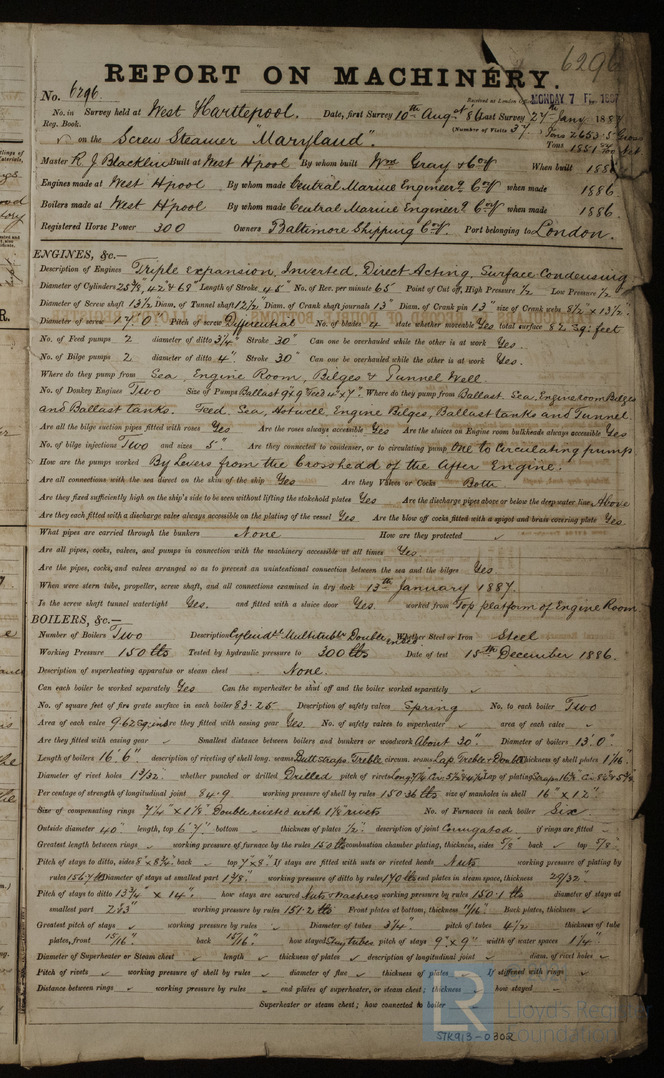 6296
REPORT ON MACHINERY.
No. 6296
Received at London MONDAY 7
No. in Survey held at West Hartlepool. Date, first Survey 10th Augst 86 Last Survey 27th Jany 188
Reg. Book. (Number of Visits 37)
on the Screw Steamer "Maryland". Tons
Master R J Blacklin Built at West H'pool By whom built Wm Gray & Coy When built 188
Engines made at West H'pool By whom made Central Marine Engineerg Coy when made 1886
Boilers made at West H'pool By whom made Central Marine Engineerg Coy when made 1886.
Registered Horse Power 300 Owners Baltimore Shipping Coy. Port belonging to London.
ENGINES, &c.—
Description of Engines Triple expansion, Inverted, Direct Acting, Surface Condensing
Diameter of Cylinders 42" & 68" Length of Stroke 45" No. of Rev. per minute 65 Point of Cut off, High Pressure 1/2 Low Pressure 1/2
Diameter of Screw shaft 13 1/2 Diam. of Tunnel shaft 12 1/2" Diam. of Crank shaft journals 13" Diam. of Crank pin 13" size of Crank webs 8 1/2" x 13 1/2"
Diameter of screw 17' 0" Pitch of screw Differential No. of blades 4 state whether moveable Yes total surface 82 sq: feet
No. of Feed pumps 2 diameter of ditto 3 1/4" Stroke 30" Can one be overhauled while the other is at work Yes.
No. of Bilge pumps 2 diameter of ditto 4". Stroke 30" Can one be overhauled while the other is at work Yes.
Where do they pump from Sea, Engine Room, Bilges & Tunnel Well.
No. of Donkey Engines Two Size of Pumps Ballast 9 x 9 Feed 4" x 7". Where do they pump from Ballast. Sea, Engine room Bilges
and Ballast tanks. Feed. Sea, Hotwell, Engine Bilges, Ballast tanks and Tunnel
Are all the bilge suction pipes fitted with roses Yes Are the roses always accessible Yes Are the sluices on Engine room bulkheads always accessible Yes
No. of bilge injections Two and sizes 5". Are they connected to condenser, or to circulating pump One to Circulating pump
How are the pumps worked By Levers from the Crosshead of the After Engine.
Are all connections with the sea direct on the skin of the ship Yes Are they Valves or Cocks Both
Are they fixed sufficiently high on the ship's side to be seen without lifting the stokehold plates Yes Are the discharge pipes above or below the deep water line Above
Are they each fitted with a discharge valve always accessible on the plating of the vessel Yes Are the blow off cocks fitted with a spigot and brass covering plate Yes.
What pipes are carried through the bunkers None How are they protected ✓
Are all pipes, cocks, valves, and pumps in connection with the machinery accessible at all times Yes.
Are the pipes, cocks, and valves arranged so as to prevent an unintentional connection between the sea and the bilges Yes
When were stern tube, propeller, screw shaft, and all connections examined in dry dock 13th January 1887.
Is the screw shaft tunnel watertight Yes. and fitted with a sluice door Yes. worked from Top platform of Engine Room.
BOILERS, &c.—
Number of Boilers Two Description Multitublr Double ended Whether Steel or Iron Steel
Working Pressure 150 lbs Tested by hydraulic pressure to 300 lbs Date of test 15th December 1886.
Description of superheating apparatus or steam chest None.
Can each boiler be worked separately Yes Can the superheater be shut off and the boiler worked separately ✓
No. of square feet of fire grate surface in each boiler 83.25 Description of safety valves Spring No. to each boiler Two
Area of each valve 9.62 sq. ins Are they fitted with easing gear Yes. No. of safety valves to superheater ✓ area of each valve ✓
Are they fitted with easing gear ✓ Smallest distance between boilers and bunkers or woodwork About 30". Diameter of boilers 13' 0"
Length of boilers 16' 6" description of riveting of shell long. seams Butt straps. Treble circum. seams Lap Treble & Double Thickness of shell plates 1 1/16"
Diameter of rivet holes 1 9/32. whether punched or drilled Drilled pitch of rivets Lap of plating
Per centage of strength of longitudinal joint 84.9 working pressure of shell by rules 150.36 lbs size of manholes in shell 16" x 12"
Size of compensating rings 7 1/4" x 1 1/8" Double riveted with 1 1/8 rivets No. of Furnaces in each boiler Six.
Outside diameter 40" length, top 6' 7" bottom ✓ thickness of plates 1/2". description of joint Corrugated if rings are fitted ✓
Greatest length between rings ✓ working pressure of furnace by the rules 150 lbs combustion chamber plating, thickness, sides 5/8" back ✓ top 5/8".
Pitch of stays to ditto, sides 8" x 8 3/4" back ✓ top 7" x 8". If stays are fitted with nuts or riveted heads Nuts. working pressure of plating by
rules 156.7 lbs Diameter of stays at smallest part 1 3/8". working pressure of ditto by rules 170 lbs end plates in steam space, thickness 29/32".
Pitch of stays to ditto 13 3/4" x 14". how stays are secured Nuts & Washers working pressure by rules 150.1 lbs diameter of stays at
smallest part 2 working pressure by rules 151.2 lbs Front plates at bottom, thickness 11/16". Back plates, thickness ✓
Greatest pitch of stays ✓ working pressure by rules ✓ Diameter of tubes 3 1/4" pitch of tubes 4 1/2 thickness of tube
plates, front 15/16". back 15/16". how stayed Stay tubes pitch of stays 9" x 9" width of water spaces 1 1/4".
Diameter of Superheater or Steam chest ✓ length ✓ thickness of plates ✓ description of longitudinal joint ✓ diam. of rivet holes ✓
Pitch of rivets ✓ working pressure of shell by rules ✓ diameter of flue ✓ thickness of plates ✓ If stiffened with rings ✓
Distance between rings ✓ working pressure by rules ✓ end plates of superheater, or steam chest; thickness ✓ how stayed ✓
Superheater or steam chest; how connected to boiler
LR
Lloyd's Register
Foundation
STK913-0302